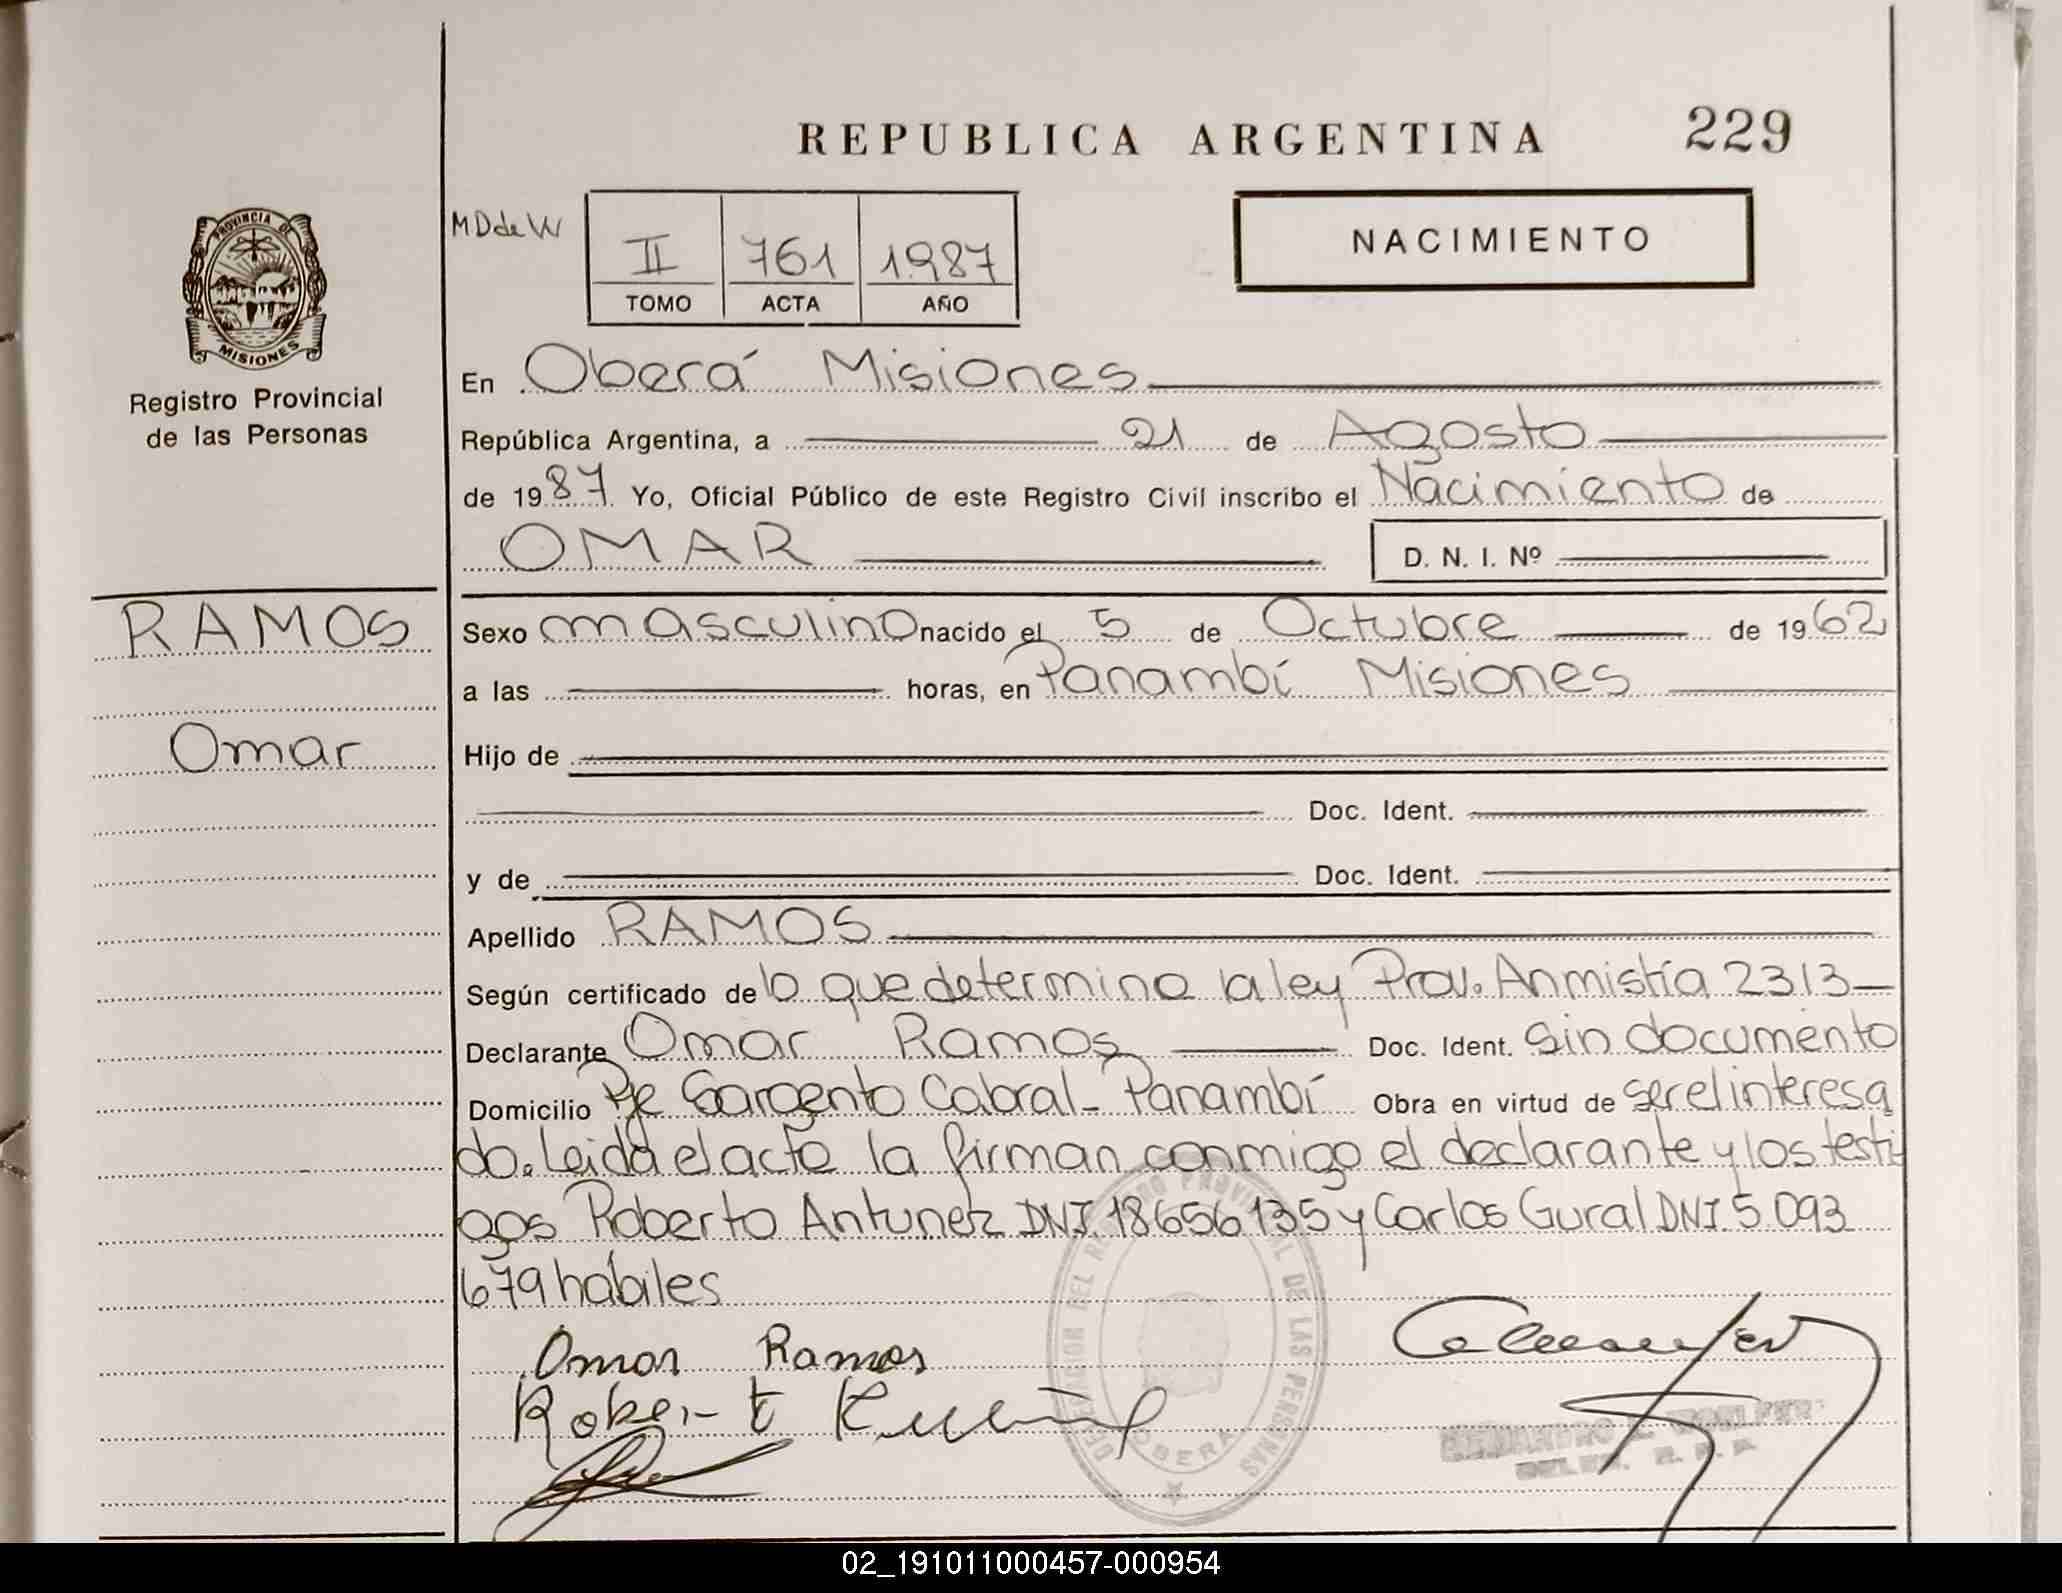 REPUBLICA ARGENTINA 229
PROVINCIA DE
MISIONES
Registro Provincial
de las Personas
MD de W
II 761 1987
TOMO ACTA AÑO
NACIMIENTO
En Oberá Misiones
República Argentina, a 21 de Agosto
de 1987. Yo, Oficial Público de este Registro Civil inscribo el Nacimiento de
OMAR D. N. I. Nº
RAMOS
Omar
Sexo masculino nacido el 5 de Octubre de 1962
a las horas, en Panambí Misiones
Hijo de
Doc. Ident.
y de Doc. Ident.
Apellido RAMOS
Según certificado de lo que determina la ley Prov. Anmistía 2313
Declarante Omar Ramos Doc. Ident. Sin documento
Domicilio Pje Sargento Cabral - Panambí Obra en virtud de ser el interesa
do. Leida el acta la firman conmigo el declarante y los testi
gos Roberto Antunez DNI 18656135 y Carlos Gural DNI 5 093
679 hábiles
Omar Ramos
DELEGACION DEL REGISTRO PROVINCIAL DE LAS PERSONAS
OBERA
02_191011000457-000954